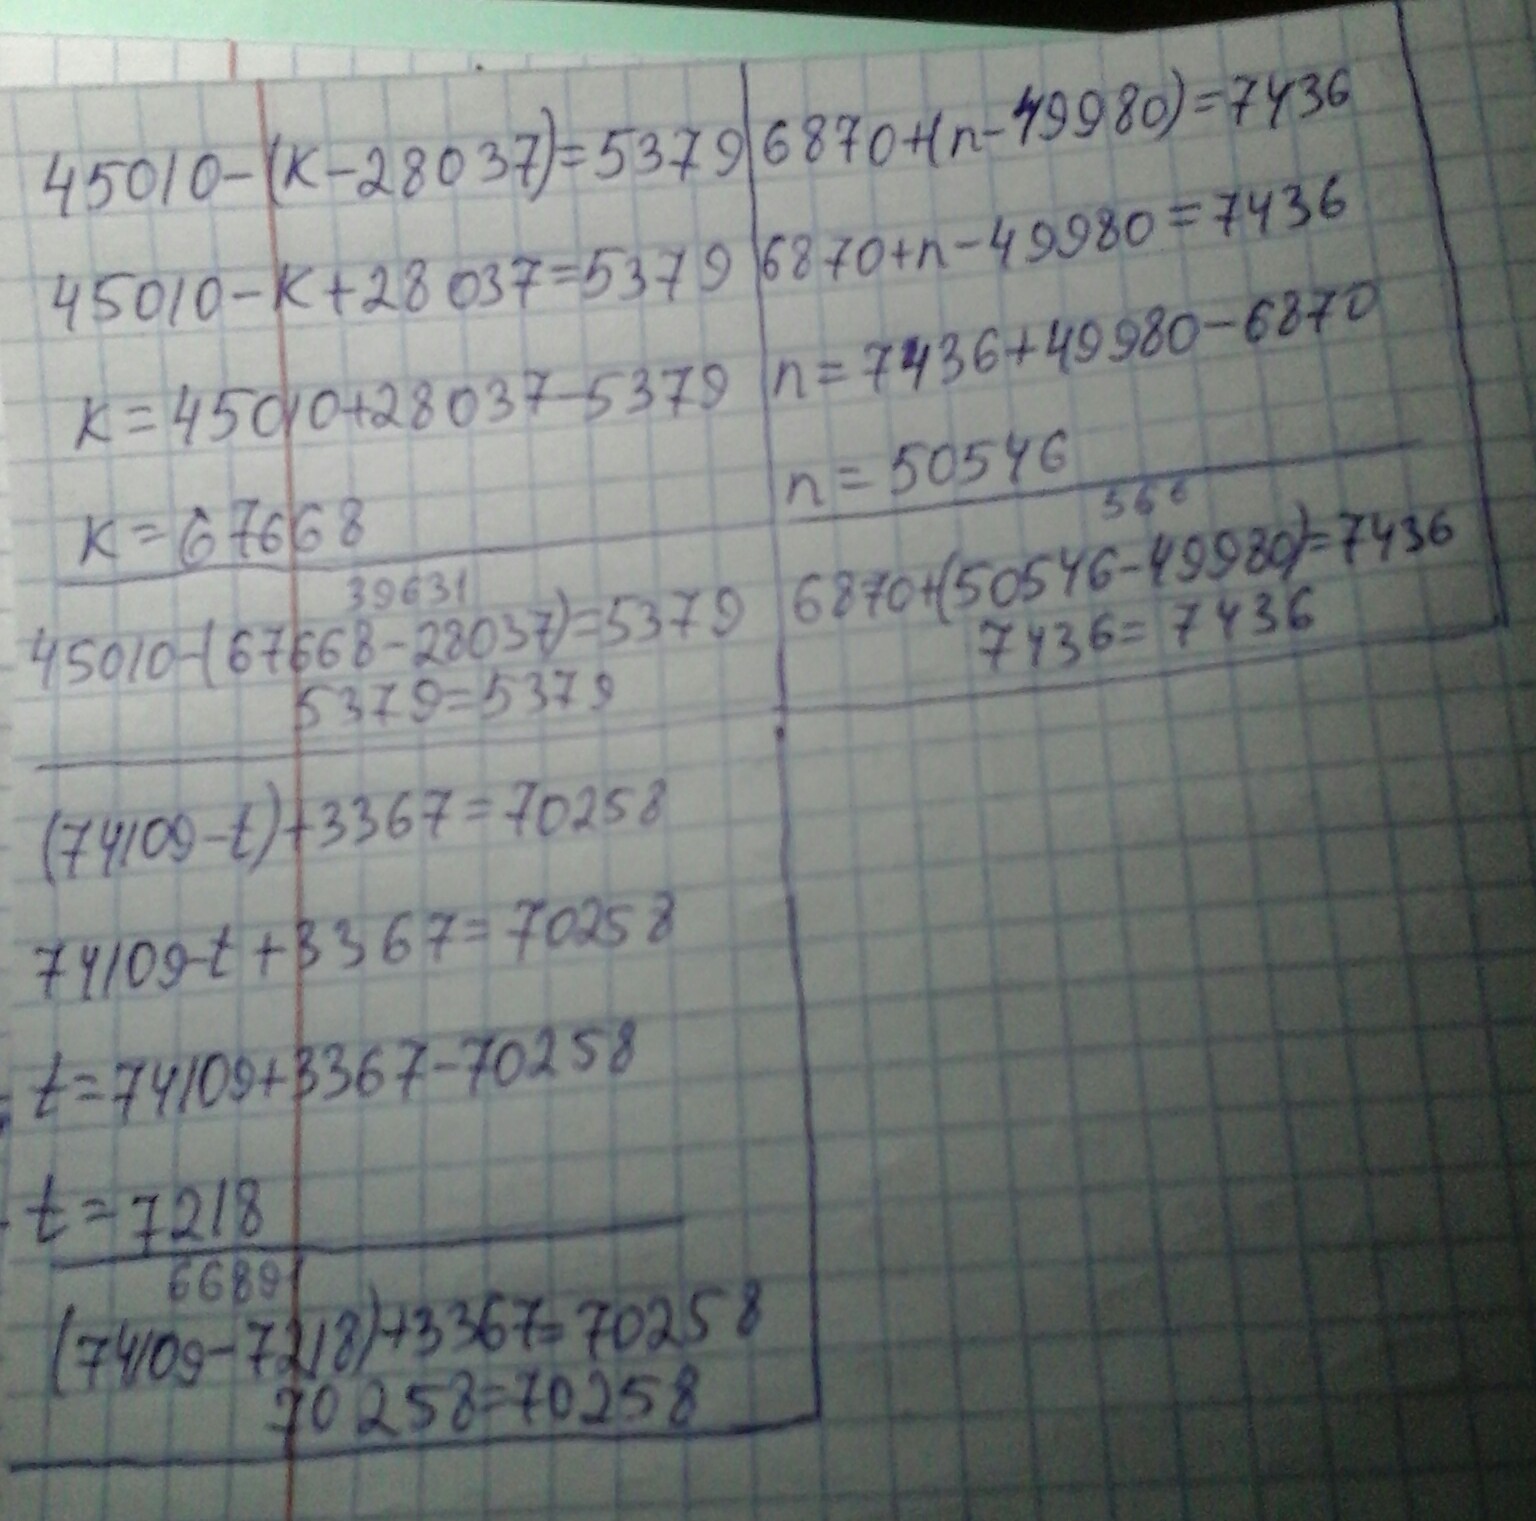 45010-(к-28037)=5379
45010-к+28037=5379
к=45010+28037-5379
к=67668
39631
45010-(67668-28037)=5379
5379=5379
6870+(n-49980)=7436
6870+n-49980=7436
n=7436+49980-6870
n=50546
566
6870+(50546-49980)=7436
7436=7436
(74109-t)+3367=70258
74109-t+3367=70258
t=74109+3367-70258
t=7218
66891
(74109-7218)+3367=70258
70258=70258